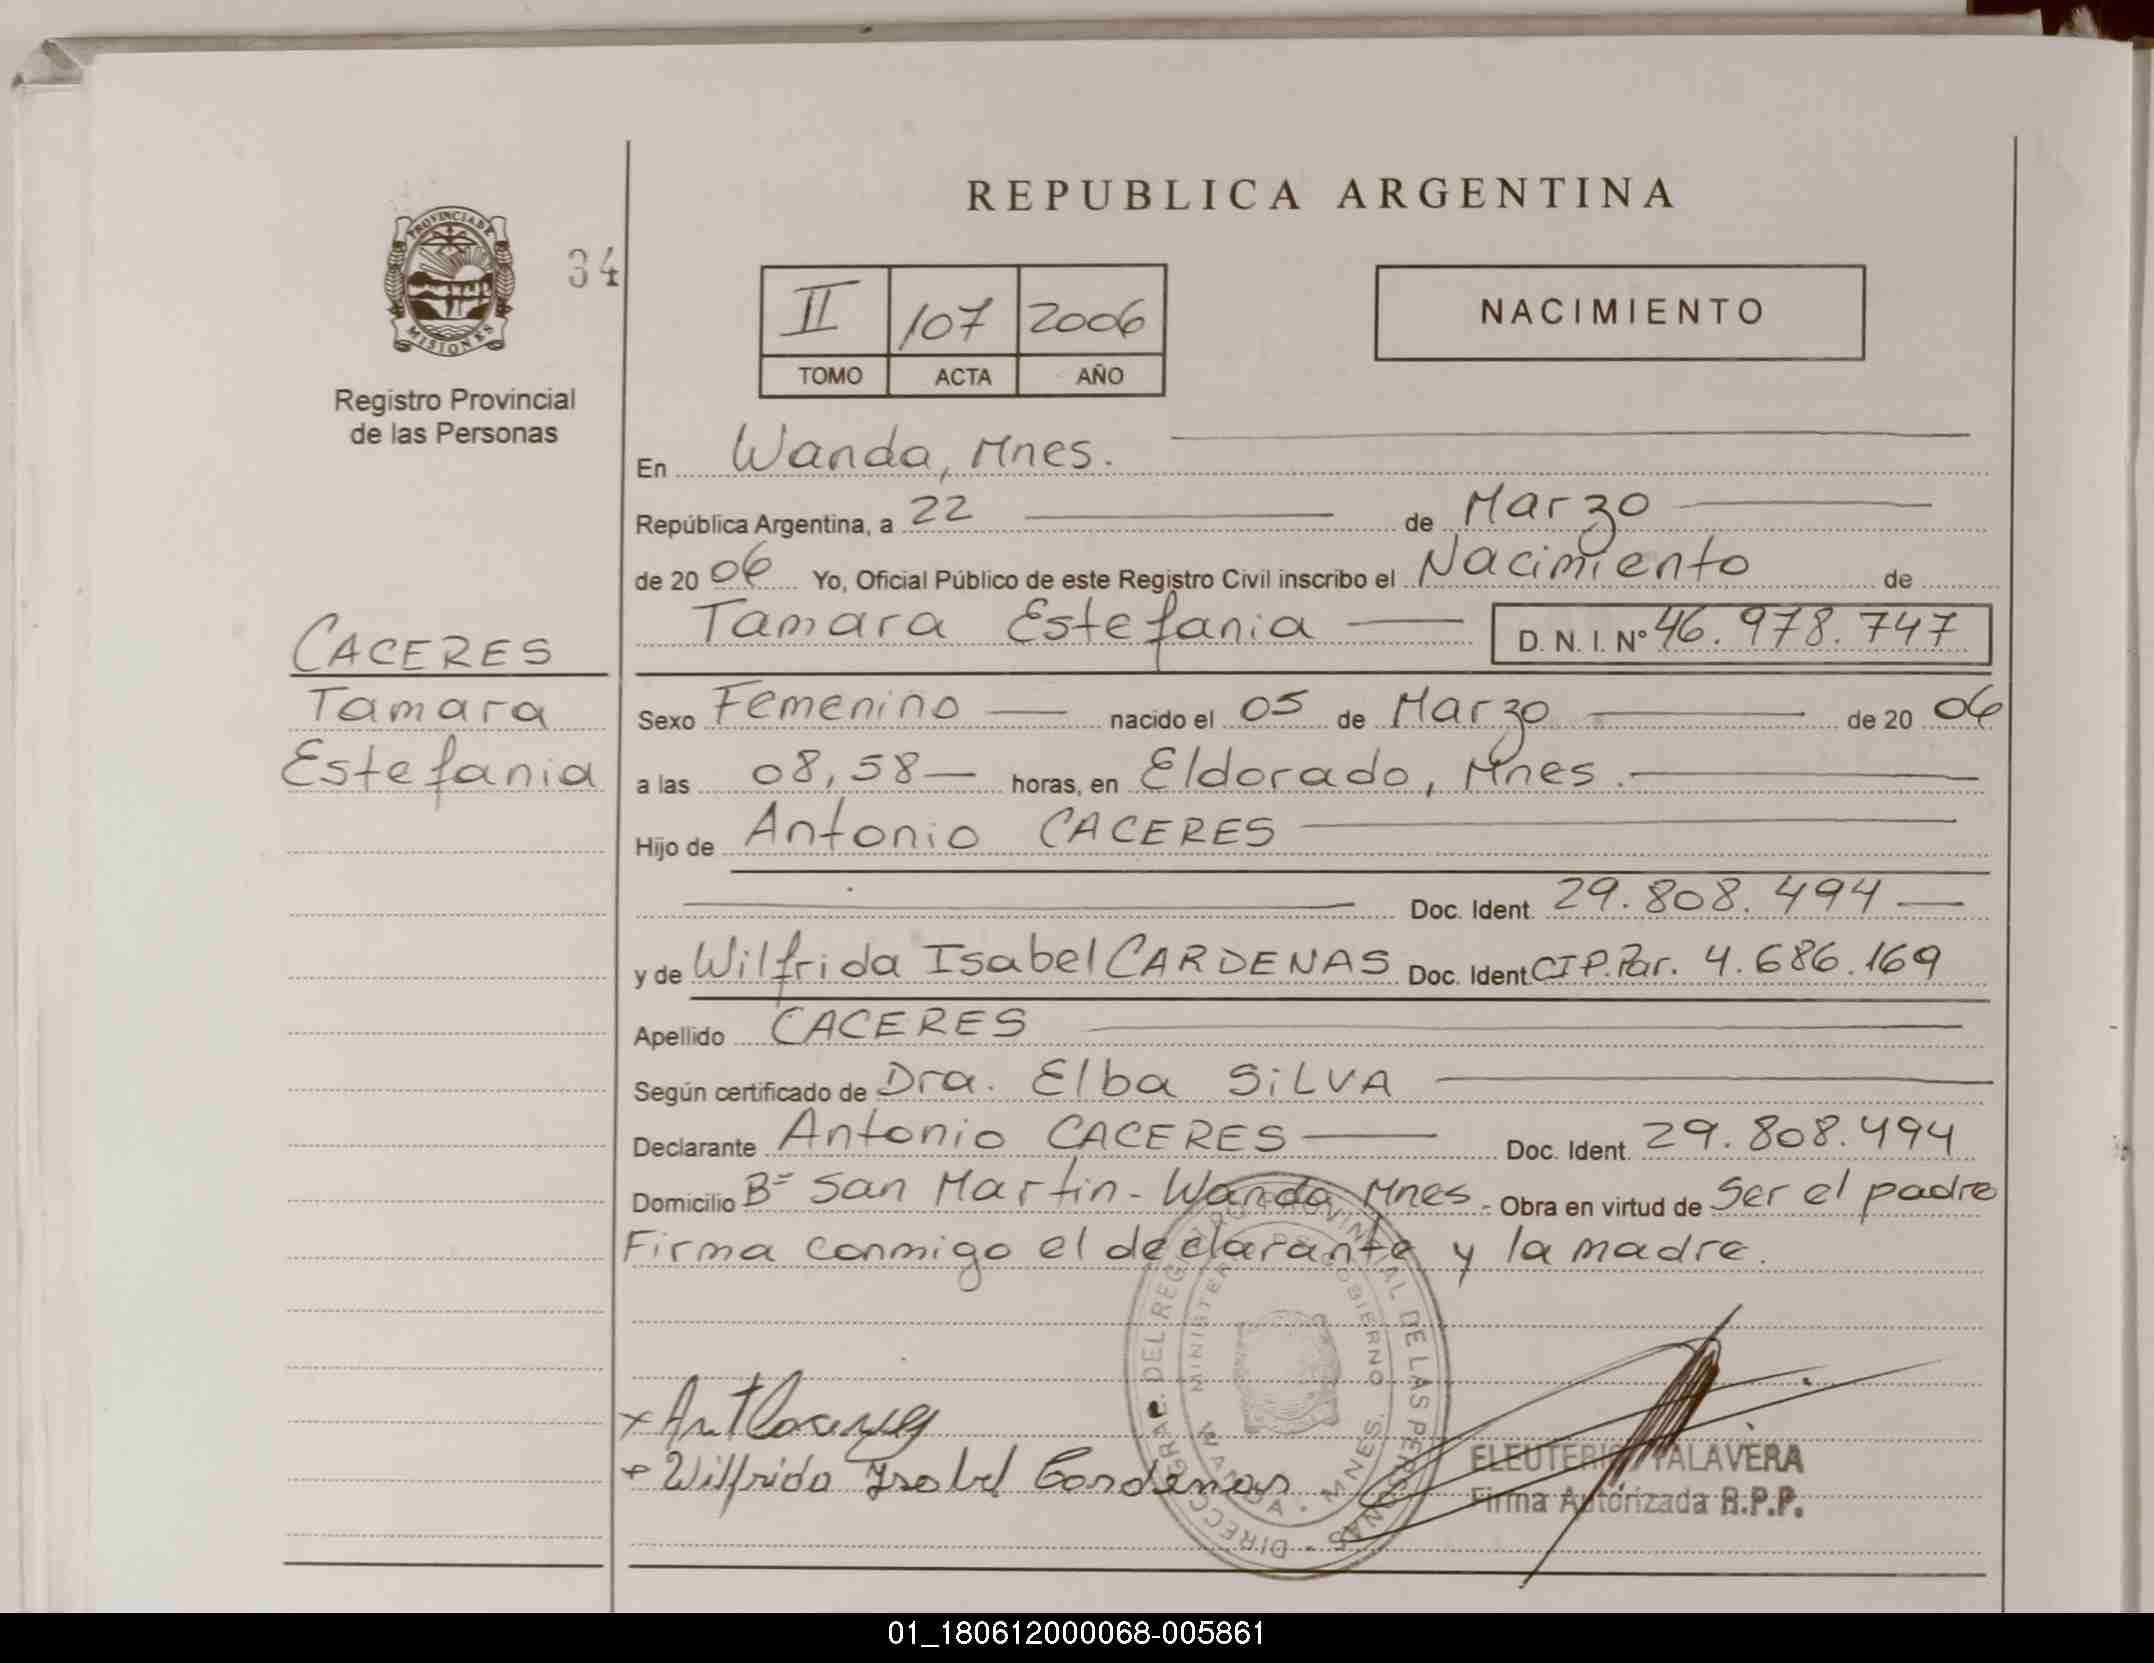 REPUBLICA ARGENTINA
PROVINCIA DE
MISIONES
34
Registro Provincial
de las Personas
II 107 2006
TOMO ACTA AÑO
NACIMIENTO
En Wanda, Mnes.
República Argentina, a 22 de Marzo
de 2006 Yo, Oficial Público de este Registro Civil inscribo el Nacimiento de
Tamara Estefania D. N. I. Nº 46.978.747
CACERES
Tamara
Estefania
Sexo Femenino nacido el 05 de Marzo de 2006
a las 08,58 horas, en Eldorado, Mnes.
Hijo de Antonio CACERES
Doc. Ident. 29.808.494
y de Wilfrida Isabel CARDENAS Doc. Ident. CIP.Par. 4.686.169
Apellido CACERES
Según certificado de Dra. Elba SiLVA
Declarante Antonio CACERES Doc. Ident. 29.808.494
Domicilio Bº San Martin - Wanda Mnes. Obra en virtud de Ser el padre
Firma conmigo el declarante y la madre.
DIRECC. GRAL. DEL REGISTRO PROVINCIAL DE LAS PERSONAS
MINISTERIO DE GOBIERNO
WANDA - MNES.
Wilfrida Isabel Cardenas
ELEUTERIO TALAVERA
Firma Autorizada R.P.P.
01_180612000068-005861